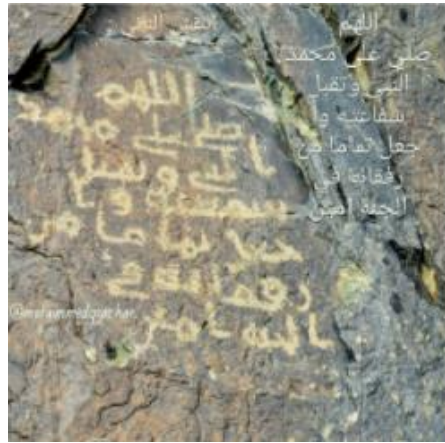 اللهم
صلي على محمد
النبي وتقبل
شفاعته وا
جعل تماما من
رفقائه في
الجنة امين
اللهم
صلي على محمد
النبي وتقبل
شفعته وا
جعل تماما من
رفقائه في
الجنة امين